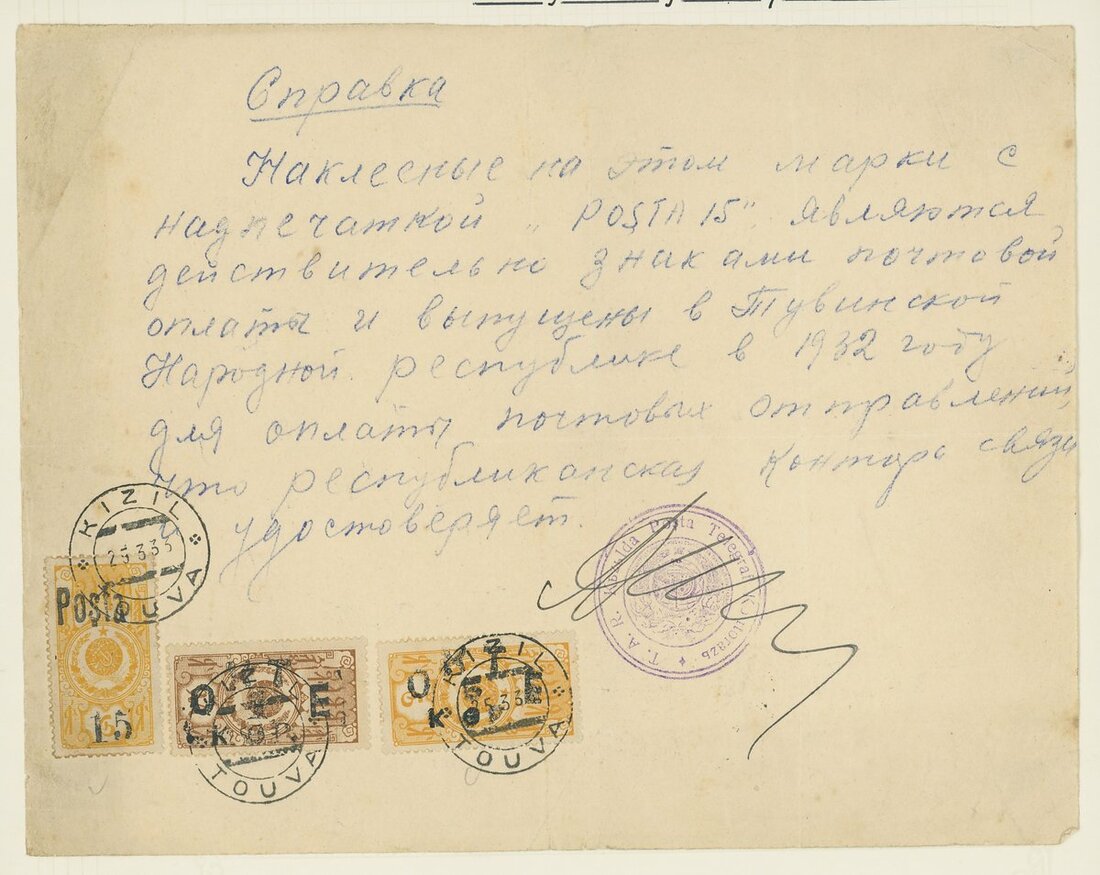 Справка
Наклесные на этом марки с
надпечаткой „POŞTA 15" являются
действительно знаками почтовой
оплаты и выпущены в Тувинской
Народной республике в 1932 году
для оплаты почтовых отправлений,
что республиканская Контора связи
и удостоверяет.
KIZIL
TOUVA
Poşta
15
KIZIL
TOUVA
KOP.
KIZIL
TOUVA
T. A. R. Posta Telegraf